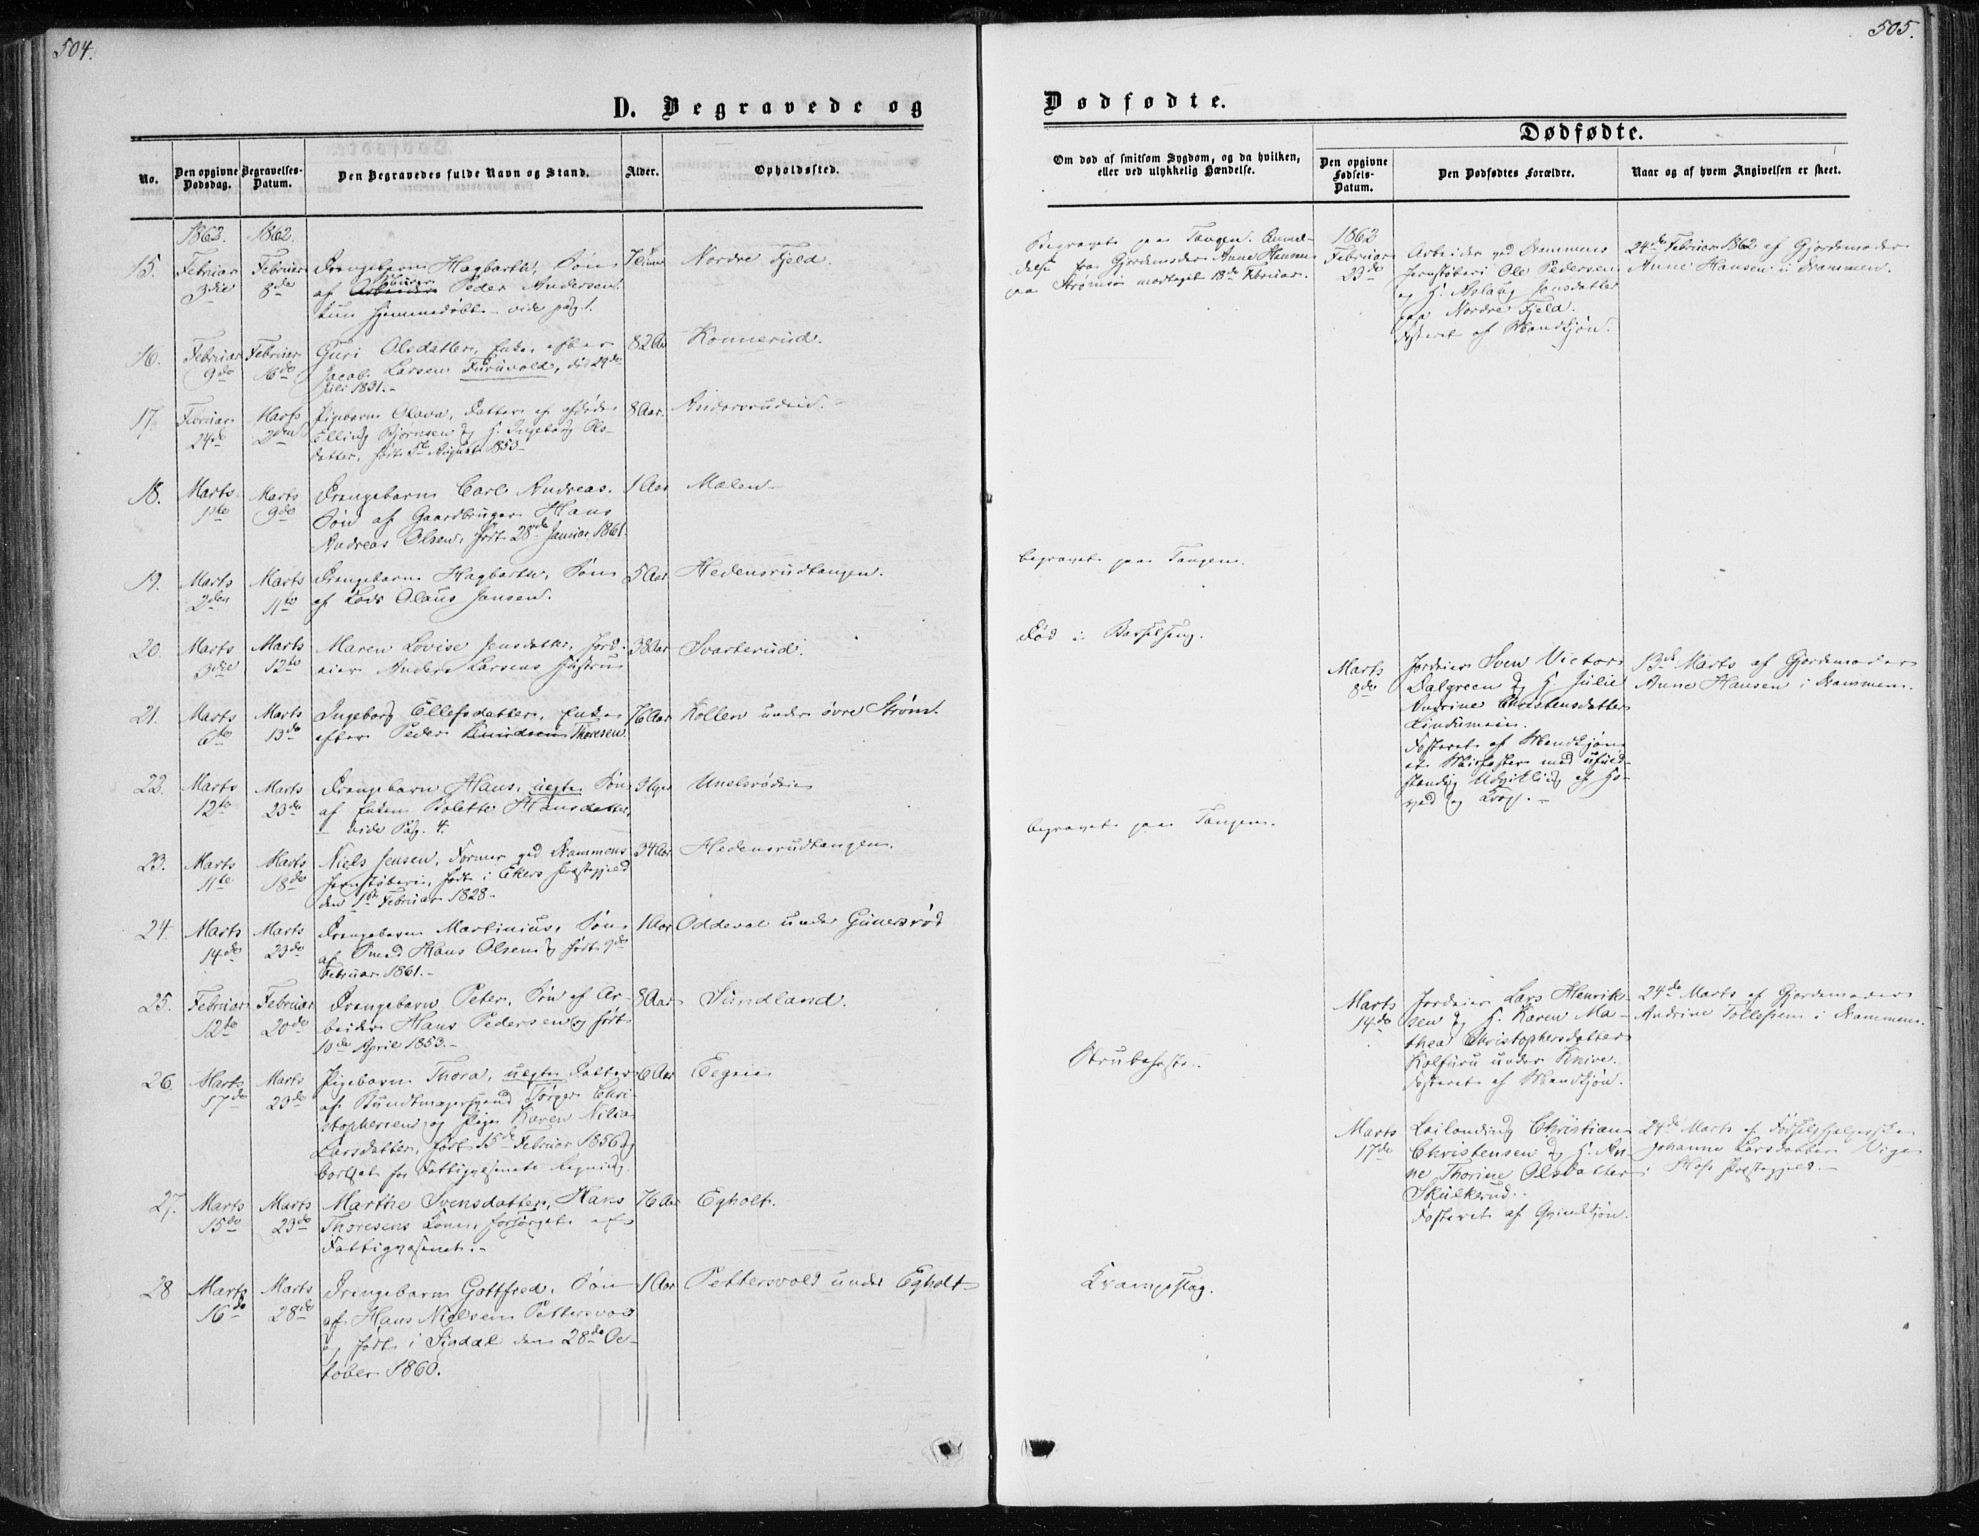 504.
D. Begravede og
No.
Den opgivne Dødsdag.
Begravelses-Datum.
Den Begravedes fulde Navn og Stand.
Alder.
Opholdssted.
1862. 1862.
15. Februar Februar Drengebarn Hagbarth, Søn Nordre Fjeld.
3die 8de af Arbeider Peder Andersen.
kun hjemmedøbt – vide pag. 1.
16. Februar Februar Guri Olsdatter, Enke efter 82 Aar Konnerud.
9de 16de Jacob Larsen Furuvold, die 29de
Juli 1831.–
17. Februar Marts Pigebarn Olava, Datter af afdøde 8 Aar.
24de 2den Elling Bjørnsen og H. Ingeborg Ols-
datter, født 5te August 1853–
18. Marts Marts Drengebarn Carl Andreas. 1 Aar Malen–
1ste 9de Søn af Gaardbruger Hans
Andreas Olsen, født 28de Januar 1861
19. Marts Marts Drengebarn Hagbarth, Søn 5 Aar Hedensrudtangen.
2den 11te af Lods Olaus Jansen.
20. Marts Marts Maren Lovise Jensdatter, Jord- 38 Aar Svarterud.
3die 12te eier Anders Larsens Hustru
21. Marts Marts Ingeborg Ellefsdatter, Enke 76 Aar Kollen under övre Ström.
6te 13de efter Peder Knudsen Thoresen.
22. Marts Marts Drengebarn Hans, uegte Søn
12te 23de af Enken Bolette Hansdatter,
– vide Pag. 4.
23. Marts Marts Niels Jensen, Former ved Drammens 34 Aar Hedensrudtangen.
11te 18de Jernstøberi, født i Ekers Præstegjeld
den 1ste Februar 1828–
24. Marts Marts Drengebarn Martinius, Søn 1 Aar Oddeval under Gunersrød
14de 23de af Smed Hans Olsen, født 9de
Februar 1861.–
25. Februar Februar Drengebarn Peter, Søn af Ar- 8 Aar Sundland.
12te 20de beider Hans Pedersen, født
10de April 1853.–
26. Marts Marts Pigebarn Thora, uegte Datter 6 Aar
17de 23de af Bundtmagersvend Tørger Chri-
stophersen og Pige Karen Nilia
Larsdatter, født 15de Februar 1856 og
bortsat for Fattigvæsenets Regning.
27. Marts Marts Marthe Svensdatter, Hans 76 Aar Egholt.
15de 23de Thoresens Kone, forsørget af
Fattigvæsenet.–
28 Marts Marts Drengebarn Gottfred, Søn 1 Aar Pettersvold under Egholt–
16de 28de af Hans Nielsen Pettersvold
og født i Sigdal den 28de Oc-
tober 1860.
505.
Dødfødte.
Om død af smitsom Sygdom, og da hvilken, eller ved ulykkelig Hændelse.
Dødfødte.
Den opgivne Fødsels-Datum.
Den Dødfødtes Forældre.
Naar og af hvem Angivelsen er skeet.
Begravet paa Tangen. Anmel-
delse fra Gjordemoder Anne Hansen
paa Strømsø modtaget 13de Februar.
1862
Februar
23de
Arbeider ved Drammens
Jernstøberi Ole Pedersen
og H. Aslaug Jensdatter
paa Nordre Fjeld.
Fosteret af Mandkjøn.
24de Februar 1862 af Gjordemoder
Anne Hansen i Drammen.
begravet paa Tangen.
død i Barselseng.
Marts
8de
Jordeier Sven Victor
Dalgreen og H. Julie
Andrine Christensdatter
Lindumeie.
Fosteret af Mandkjøn
et Misfoster med ufuld-
stændig Udvikling af Ho-
ved og Krop. –
13de Marts af Gjordemoder
Anne Hansen i Drammen.
begravet paa Tangen.
Marts
14de
Jordeier Lars Henrik-
sen og H. Karen Ma-
thea Christophersdatter
Kolfuru under Knive.
Fosteret af Mandkjøn.
24de Marts af Gjordemoder
Andrine Tollefsen i Drammen.
Strubehoste.
Marts
17de
Leilending Christian
Christensen og H. An-
ne Thorine Olsdatter
Skulkerud.
Fosteret af Qvindkjøn.
24de Marts af Fødselshjelperske
Johanne Larsdatter Vige
i Hofs Præstegjeld.–
Krampeslag.